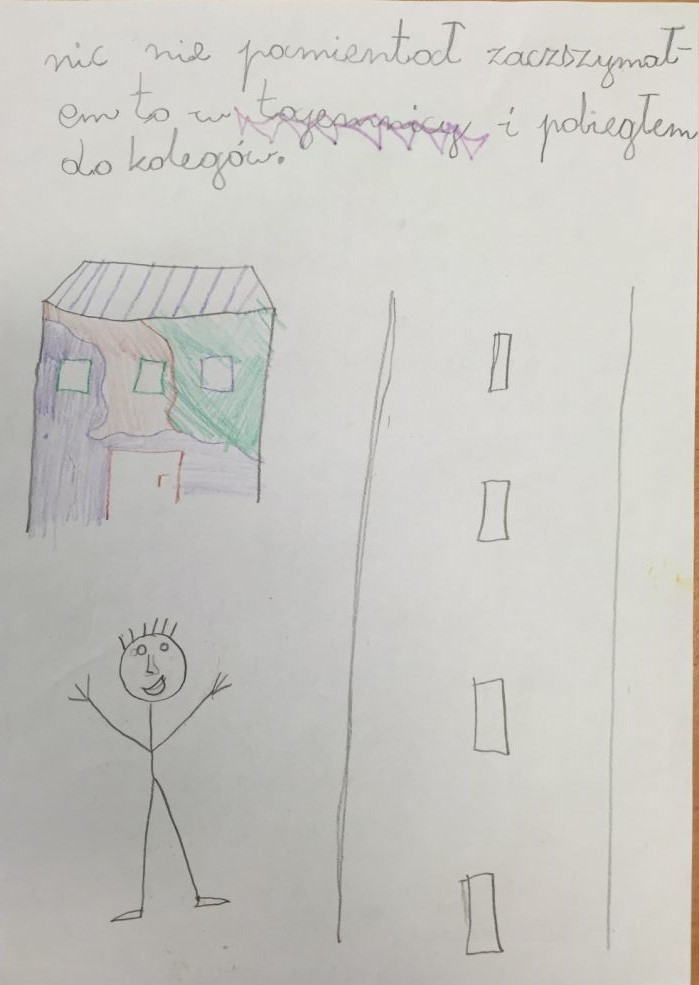 nic nie pamientoł zaczszymał-
em to w tajemnicy i pobiegłem
do kolegów.